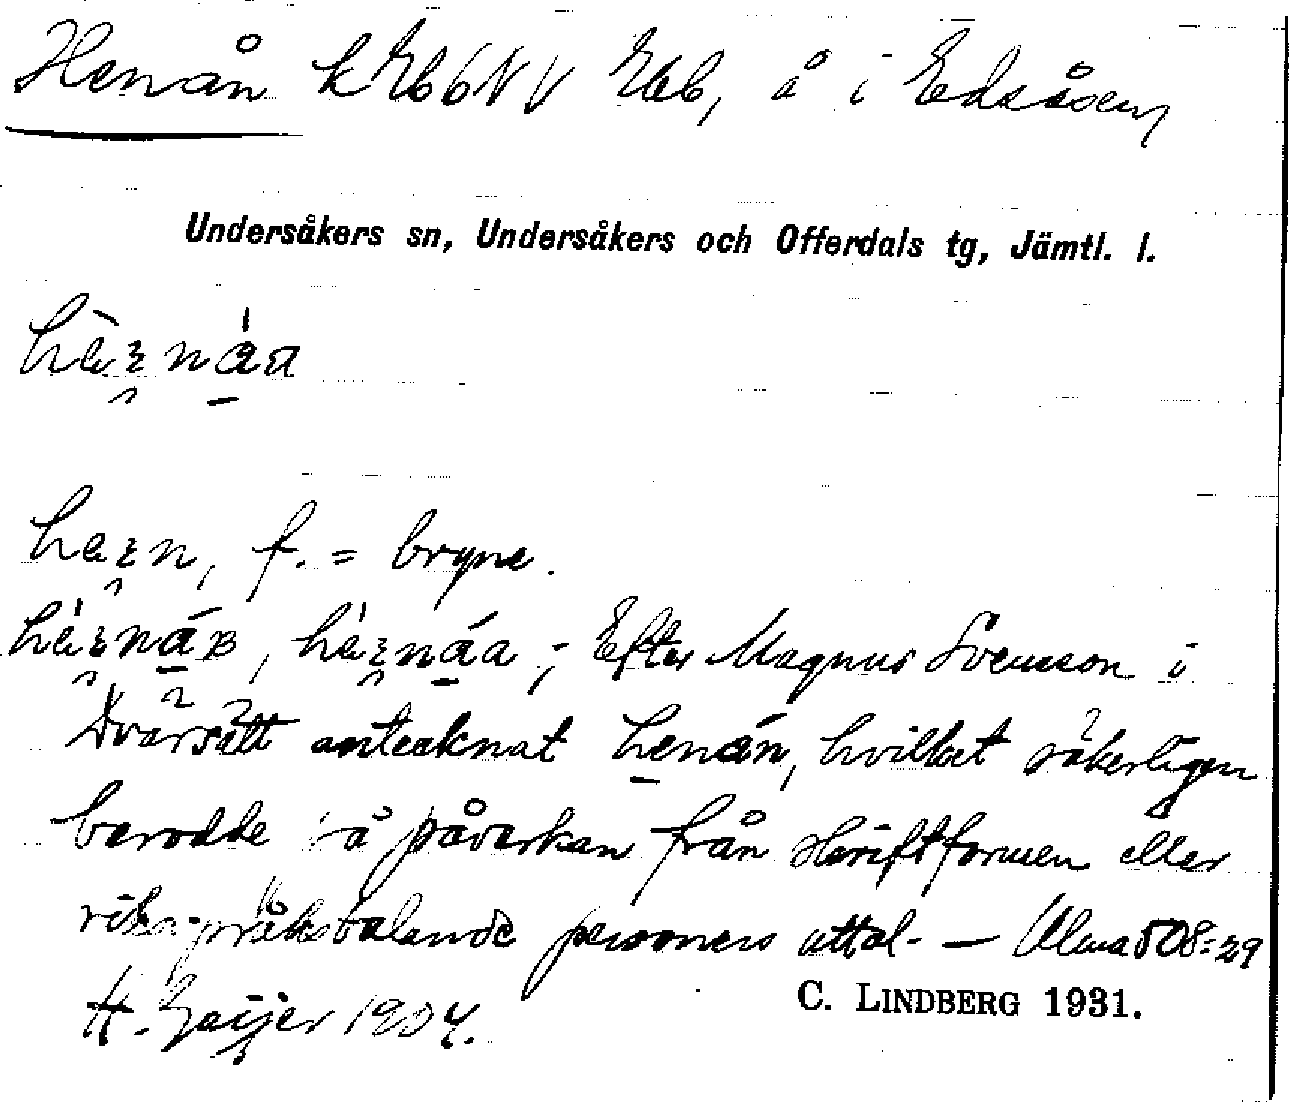 Henån k Eb6NV Ebb, å i Edsåsen,
Undersåkers sn, Undersåkers och Offerdals tg, Jämtl. l.
f. = bryne.
; Efter Magnus Svensson i
Dvärsätt antecknat henån, hvilket säkerligen
berodde på påverkan från skriftformen eller
riksspråkstalande personers uttal. — Ulma 508:29
H. Geijer 1904.
C. LINDBERG 1931.